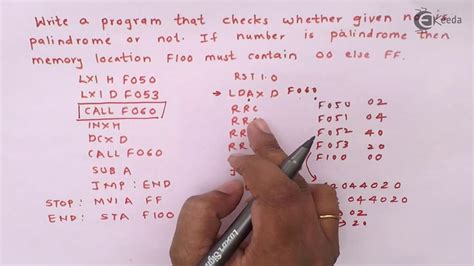 Ekeeda
Write a program that checks whether given no is
palindrome or not. If number is palindrome then
memory location F100 must contain 00 else FF.
LXI H F050
LXI D F053
CALL F060
INX H
DCX D
CALL F060
SUB A
JMP: END
STOP: MVI A FF
END: STA F100
RST 1.0
→ LDAX D F060
RRC
RR
RR
RR
F050 02
F051 04
F052 40
F053 20
F100 00
02
20